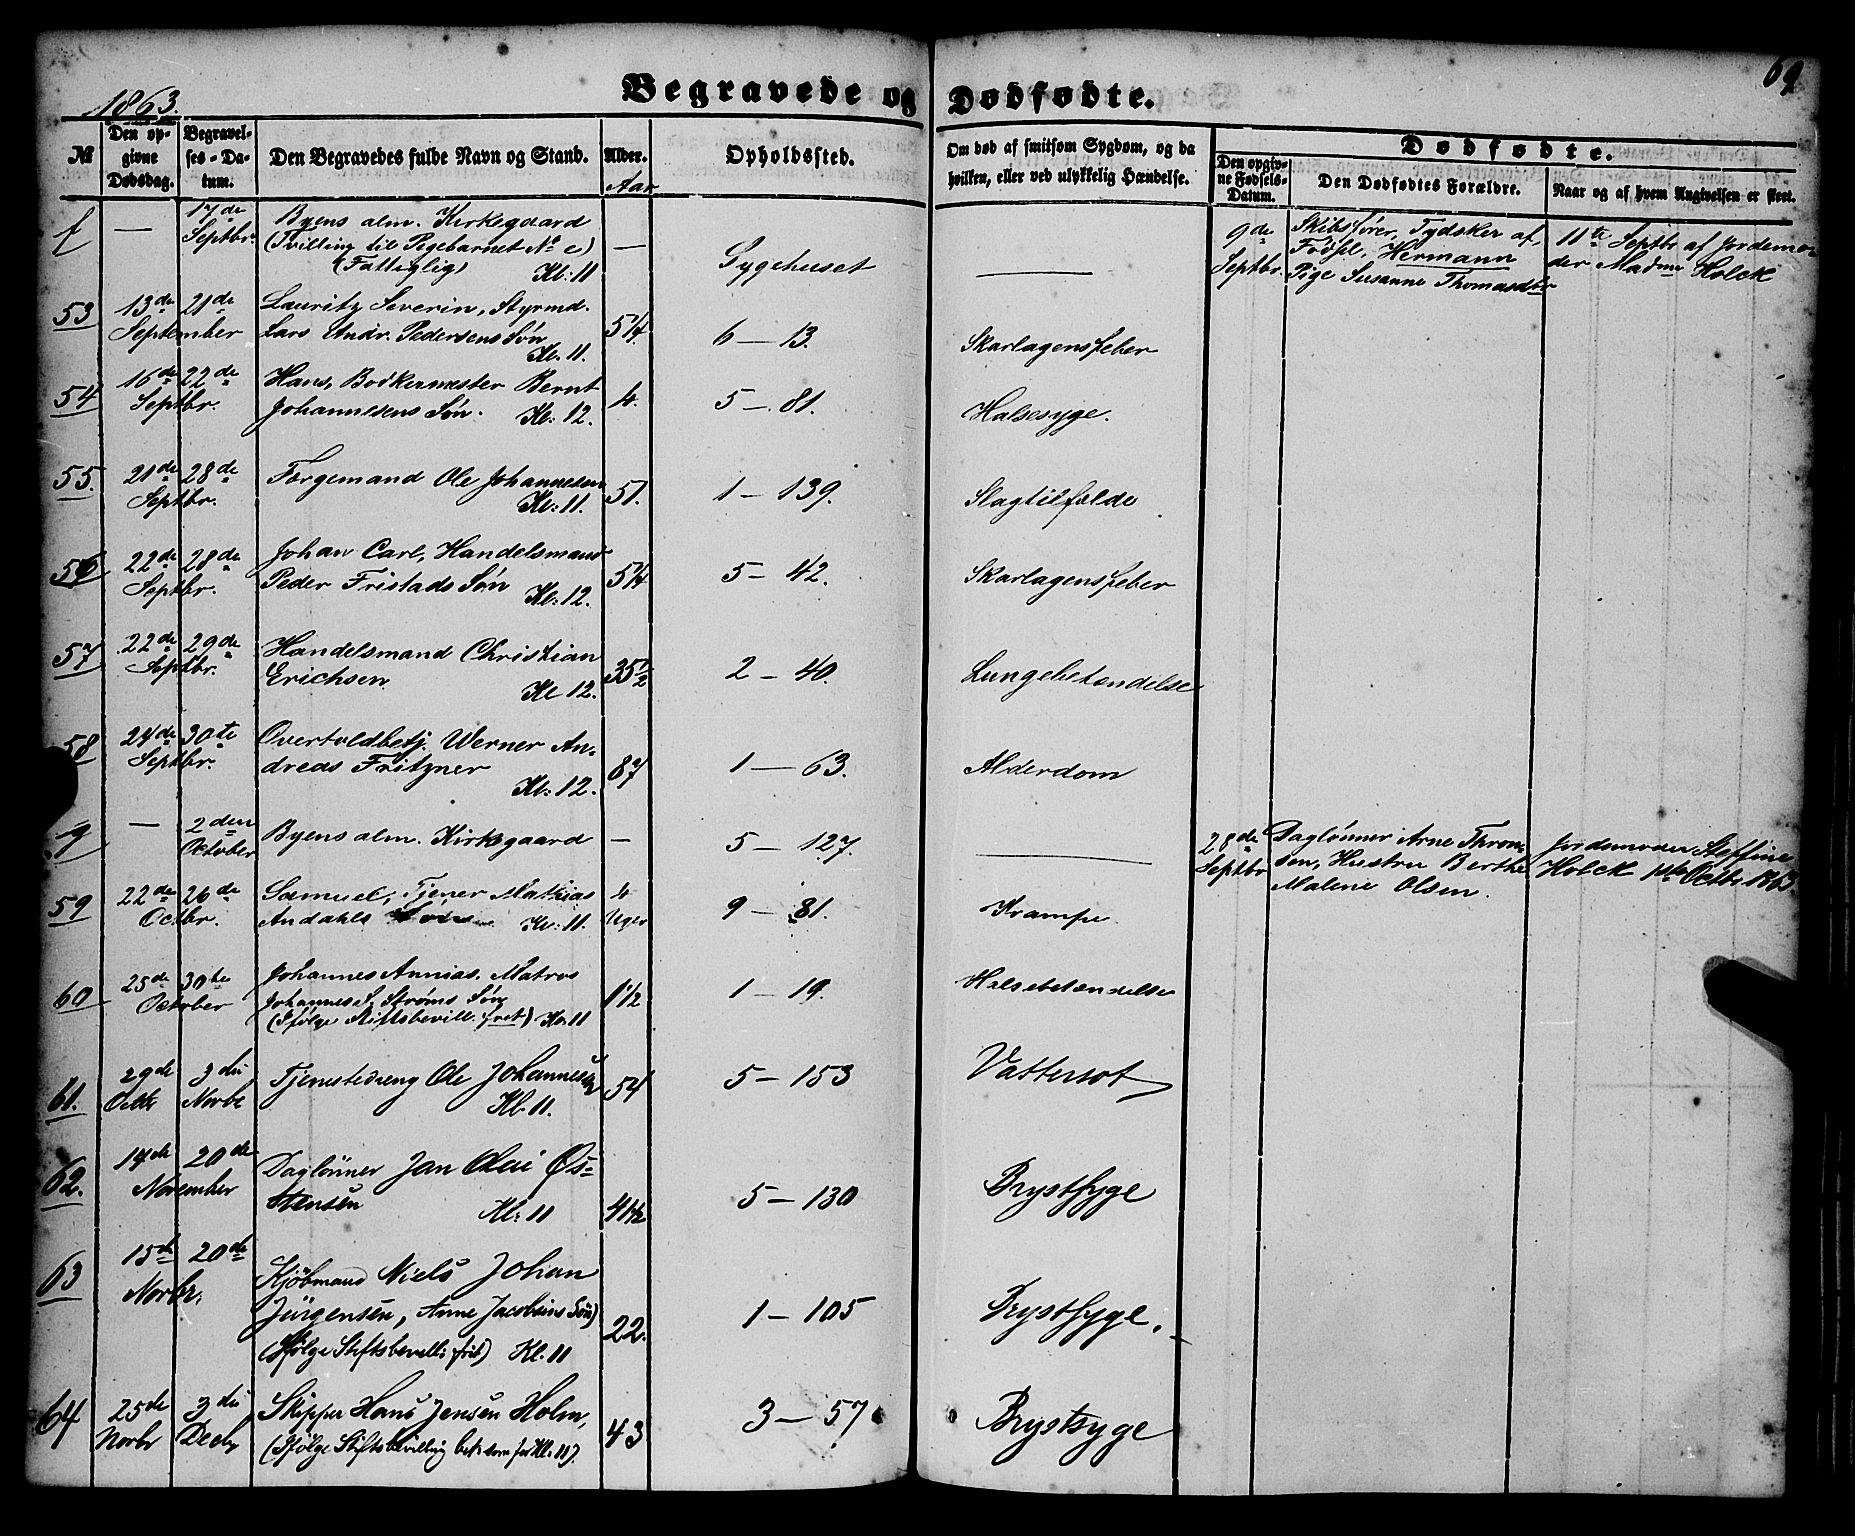 1863.
Begravede og Dødfødte.
69
№
Den opgivne Dødsdag.
Begravelses-Datum.
Den Begravedes fulde Navn og Stand.
Alder.
Aar
Opholdssted.
Om død af smitsom Sygdom, og da hvilken, eller ved ulykkelig Hændelse.
Dødfødte.
Den opgivne Fødsels-Datum.
Den Dødfødtes Forældre.
Naar og af hvem Angivelsen er skeet.
f — 17de Septbr. Byens alm. Kirkegaard
(Tvilling til Pigebarnet No e)
(Fattiglig) Kl: 11 — Sygehuset
9de Septbr. Skibsfører, Tydsker af
Fødsel, Hermann
Pige Susanne Thomasdtr
11te Septbr af Jordemo-
der Madme Holck
53 13de 21de Lauritz Severin, Styrmd.
September Lars Andr. Pedersens Søn 5¼ 6 — 13. Skarlagensfeber
Kl. 11.
54 16de 22de Hans, Bødkermester Bernt
Septbr. Johannesens Søn. Kl: 12. 4. 5 — 81. Halsesyge.
55. 21de 28de Færgemand Ole Johannesen
Septbr. Kl: 11. 51. 1 — 139. Slagtilfælde
56 22de 28de Johan Carl, Handelsmand
Septbr. Peder Fristads Søn Kl: 12. 5¼ 5 — 42. Skarlagensfeber
57 22de 29de Handelsmand Christian
Septbr. Erichsen Kl 12. 35½ 2 — 40. Lungebetændelse
58 24de 30te Overtoldbetj. Werner An-
Septbr. dreas Fritzner Kl: 12. 87 1 — 63. Alderdom
g — 2den October Byens alm. Kirkegaard — 5 — 127.
28de Septbr Daglønner Arne Thom-
sen, Hustru Berthe
Malene Olsen.
Jordemoder Steffine
Holck 1ste Octbr. 1863.
59 22de 26de Samuel, Tjener Mathias
Octbr. Andahls Søn Kl: 11. 4 Uger 9 — 81. Krampe
60 25de 30te Johannes Annias, Matros
October Johannes S. Strøms Søn
(Ifølge Stiftsbevill. frit) Kl. 11 1½ 1 — 19. Halsebetændelse
61. 29de 3die Tjenestedreng Ole Johannesen
Octbr Novbr Kl. 11. 54 5 — 153 Vattersot
62. 14de 20de Daglønner Jan Olai Øs-
November tensen Kl: 11 41½ 5 — 130 Brystsyge
63 15de 20de Kjøbmand Niels Johan
Novbr. Jürgensen, Anne Jacobsens Søn)
(Ifølge Stiftsbevill: frit) Kl. 11 22. 1 — 105 Brystsyge.
64 25de 3die Skipper Hans Jensen Holm,
Novbr Decbr (Ifølge Stiftsbevilling bet. som for Kl: 11). 43 3 — 57 Brystsyge